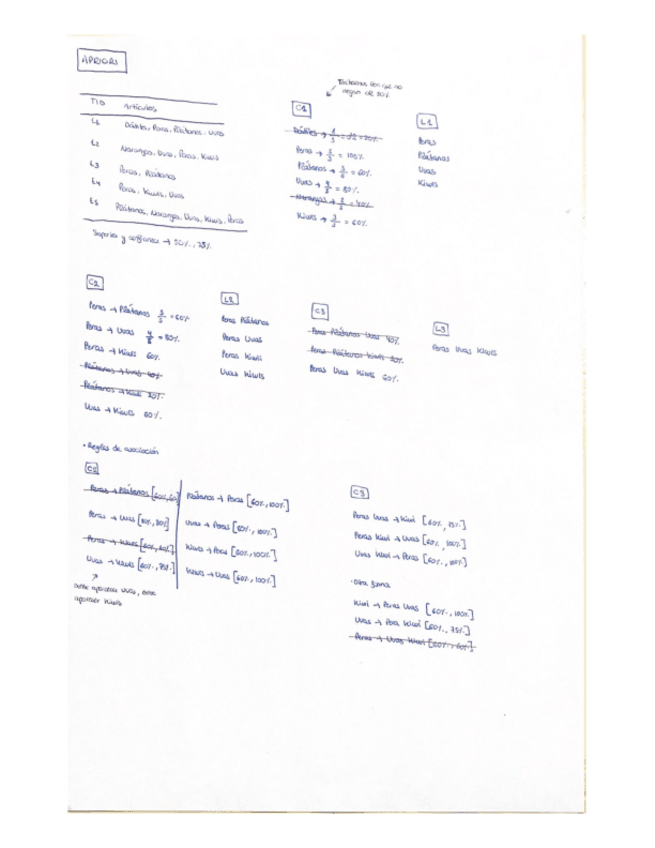 APRIORI
Tachamos los que no
llegan al 50%
TID Artículos
L1 Dátiles, Peras, Plátanos, Uvas
L2 Naranjas, Uvas, Peras, Kiwis
L3 Peras, Plátanos
L4 Peras, Kiwis, Uvas
L5 Plátanos, Naranjas, Uvas, Kiwis, Peras
Soporte y confianza → 50%, 75%
C1
Dátiles → 1/5 = 0'2 = 20%
Peras → 5/5 = 100%
Plátanos → 3/5 = 60%
Uvas → 4/5 = 80%
Naranjas → 2/5 = 40%
Kiwis → 3/5 = 60%
L1
Peras
Plátanos
Uvas
Kiwis
C2
Peras → Plátanos 3/5 = 60%
Peras → Uvas 4/5 = 80%
Peras → Kiwis 60%
Plátanos → Uvas 40%
Plátanos → Kiwis 20%
Uvas → Kiwis 60%
L2
Peras Plátanos
Peras Uvas
Peras Kiwis
Uvas Kiwis
C3
Peras Plátanos Uvas 40%
Peras Plátanos Kiwis 20%
Peras Uvas Kiwis 60%
L3
Peras Uvas Kiwis
• Reglas de asociación
C2
Peras → Plátanos [60%, 60%]
Peras → Uvas [80%, 80%]
Peras → Kiwis [60%, 60%]
Uvas → Kiwis [60%, 75%]
Plátanos → Peras [60%, 100%]
Uvas → Peras [80%, 100%]
Kiwis → Peras [60%, 100%]
Kiwis → Uvas [60%, 100%]
aparecer Uvas,
aparecer Kiwis
C3
Peras Uvas → Kiwi [60%, 75%]
Peras Kiwi → Uvas [60%, 100%]
Uvas Kiwi → Peras [60%, 100%]
• Otra forma
Kiwi → Peras Uvas [60%, 100%]
Uvas → Pera Kiwi [60%, 75%]
Peras → Uvas Kiwi [60%, 60%]